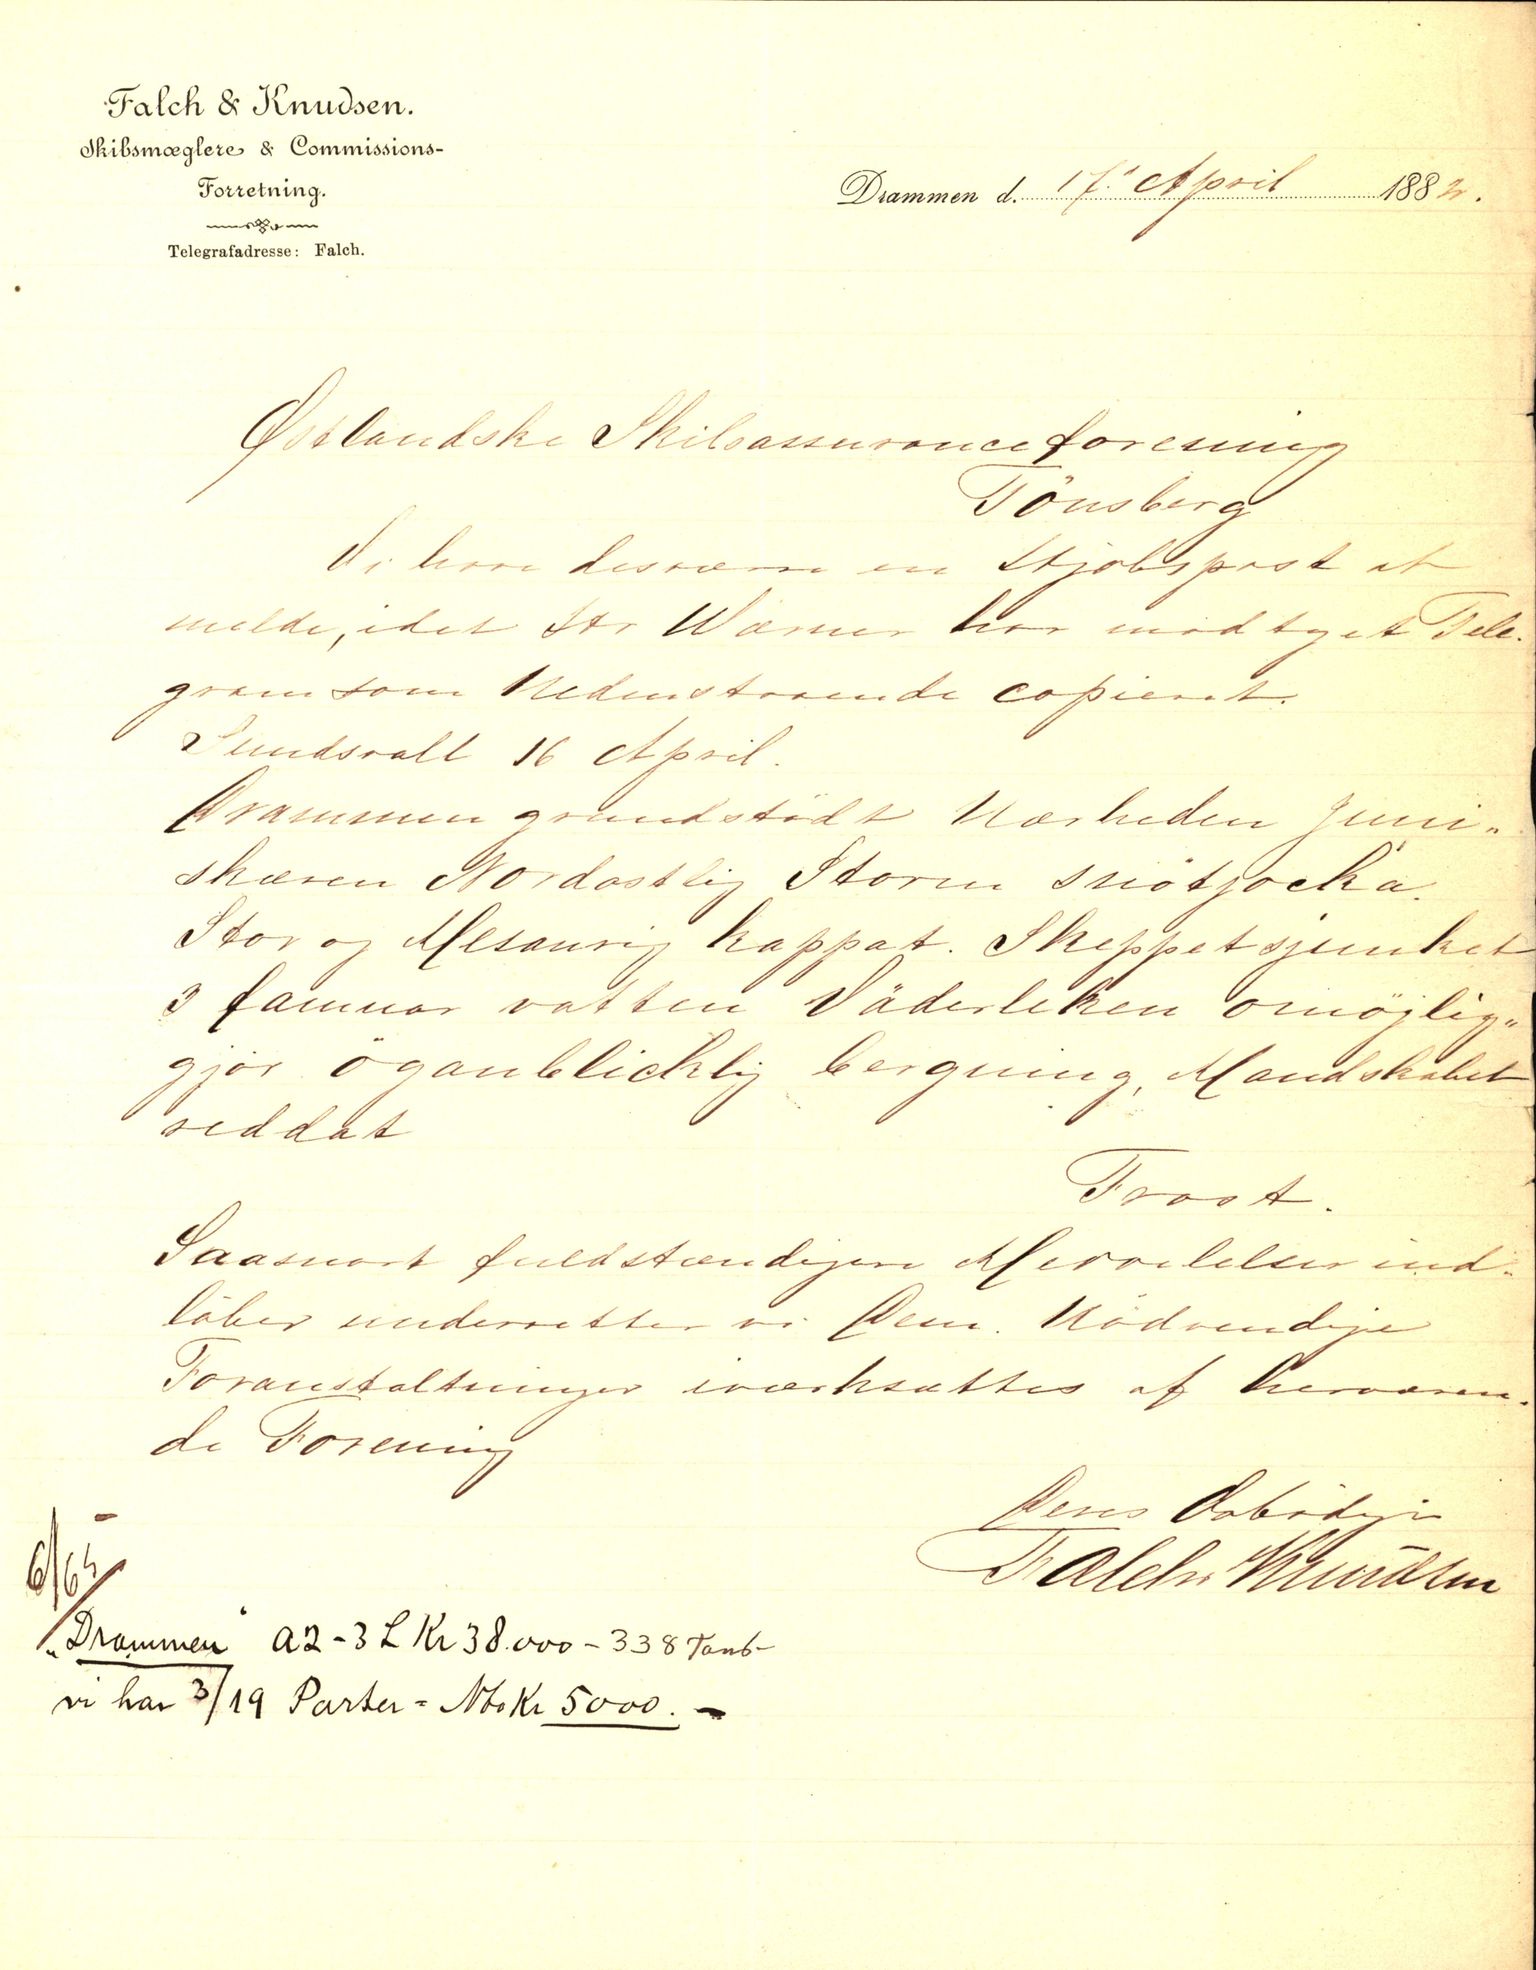 Falch & Knudsen.
Skibsmæglere & Commissions-
Forretning.
Telegrafadresse: Falch.
Drammen d. 17. April 1882.
Østlandske Skibsassuranceforening
Tönsberg
Vi have desværre en Stjobspost at
melde, idet Hr Wærner har modtaget Tele-
gram som Nedenstaaende copieret.
Sundsvall 16 April.
Drammen grundstödt Nærheden Juni-
skæren Nordostlig Storm snötjocka.
Stor og Mesanrig kappat. Skeppet sjunket
3 famnar vatten Väderleken omöjlig-
gjör öganblicklig bergning, Mandskabet
reddat
Frost.
Saasnart fuldstændigere Meddelelser ind-
löber underretter vi Dem. Nödvendige
Foranstaltninger iværksættes af herværen-
de Forening
DeresÆrbödige
Falch & Knudsen
6/65
"Drammen" A2 - 3 L Kr 38.000 - 338 Tons
vi har 3/19 Parter = Nto Kr 5000. -